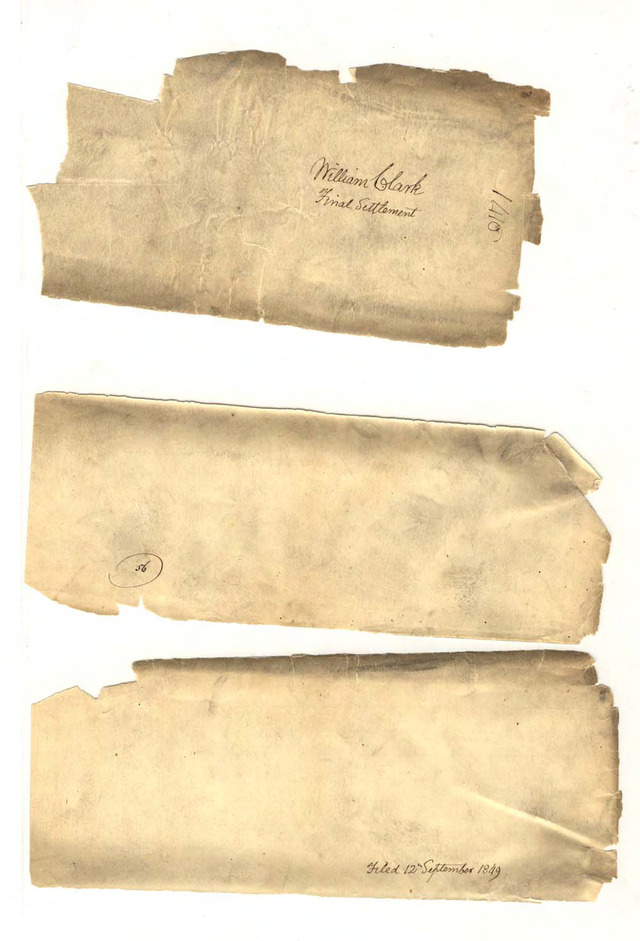 William Clark
Final Settlement
56
Filed 12th September 1849